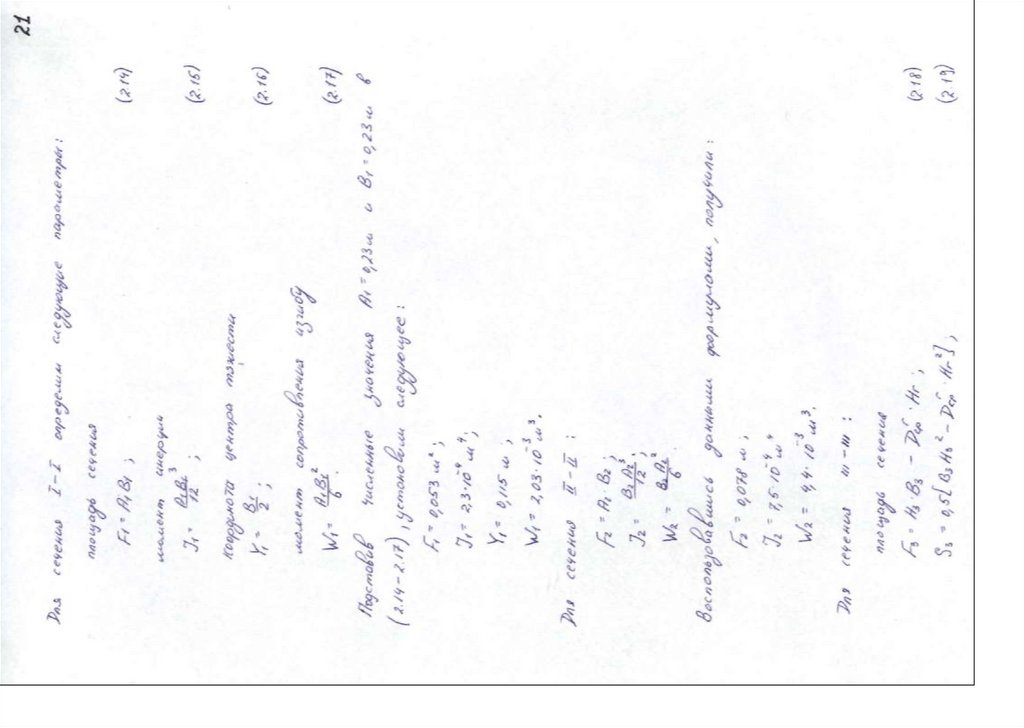 21
Для сечения I-I определим следующие параметры:
площадь сечения
F₁ = A₁B₁ ; (2.14)
момент инерции
J₁ = A₁B₁³/12 ; (2.15)
координата центра тяжести
Y₁ = B₁/2 ; (2.16)
момент сопротивления изгибу
W₁ = A₁B₁²/6 . (2.17)
Подставив численные значения A₁ = 0,23 м и B₁ = 0,23 м в
(2.14 - 2.17), установили следующее:
F₁ = 0,053 м² ;
J₁ = 2,3·10⁻⁴ м⁴ ;
Y₁ = 0,115 м ;
W₁ = 2,03·10⁻³ м³.
Для сечения II-II :
F₂ = A₂·B₂ ;
J₂ = B₂A₂³/12 ;
W₂ = B₂A₂²/6 .
Воспользовавшись данными формулами, получили:
F₂ = 0,078 м ;
J₂ = 7,5·10⁻⁴ м⁴
W₂ = 4,4·10⁻³ м³.
Для сечения III-III :
площадь сечения
F₃ = H₃B₃ - Dᶜср·Hг ; (2.18)
S₃ = 0,5[B₃H₃² - Dᶜср·Hг²] ; (2.19)